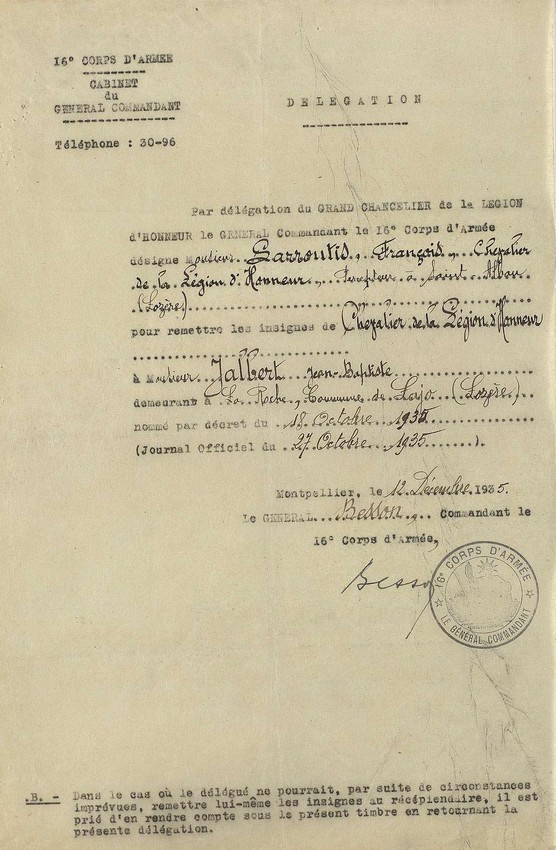 16° CORPS D'ARMEE
CABINET
du
GENERAL COMMANDANT
Téléphone : 30-96
DELEGATION
Par délégation du GRAND CHANCELIER de la LEGION
d'HONNEUR le GENERAL Commandant le 16° Corps d'Armée
désigne Monsieur Garroutis, François, Chevalier
de la Légion d'Honneur, Percepteur à Saint Alban
(Lozère)
pour remettre les insignes de Chevalier de la Légion d'Honneur
à Monsieur Jalbert Jean-Baptiste
demeurant à La Roche, Commune de Lajo (Lozère)
nommé par décret du 18 Octobre 1935
(Journal Officiel du 27 Octobre 1935).
Montpellier, le 12 Décembre 1935.
Le GENERAL Besson, Commandant le
16° Corps d'Armée,
Besson
16e CORPS D'ARMÉE
LE GÉNÉRAL COMMANDANT
.B. - Dans le cas où le délégué ne pourrait, par suite de circonstances
imprévues, remettre lui-même les insignes au récépiendaire, il est
prié d'en rendre compte sous le présent timbre en retournant la
présente délégation.